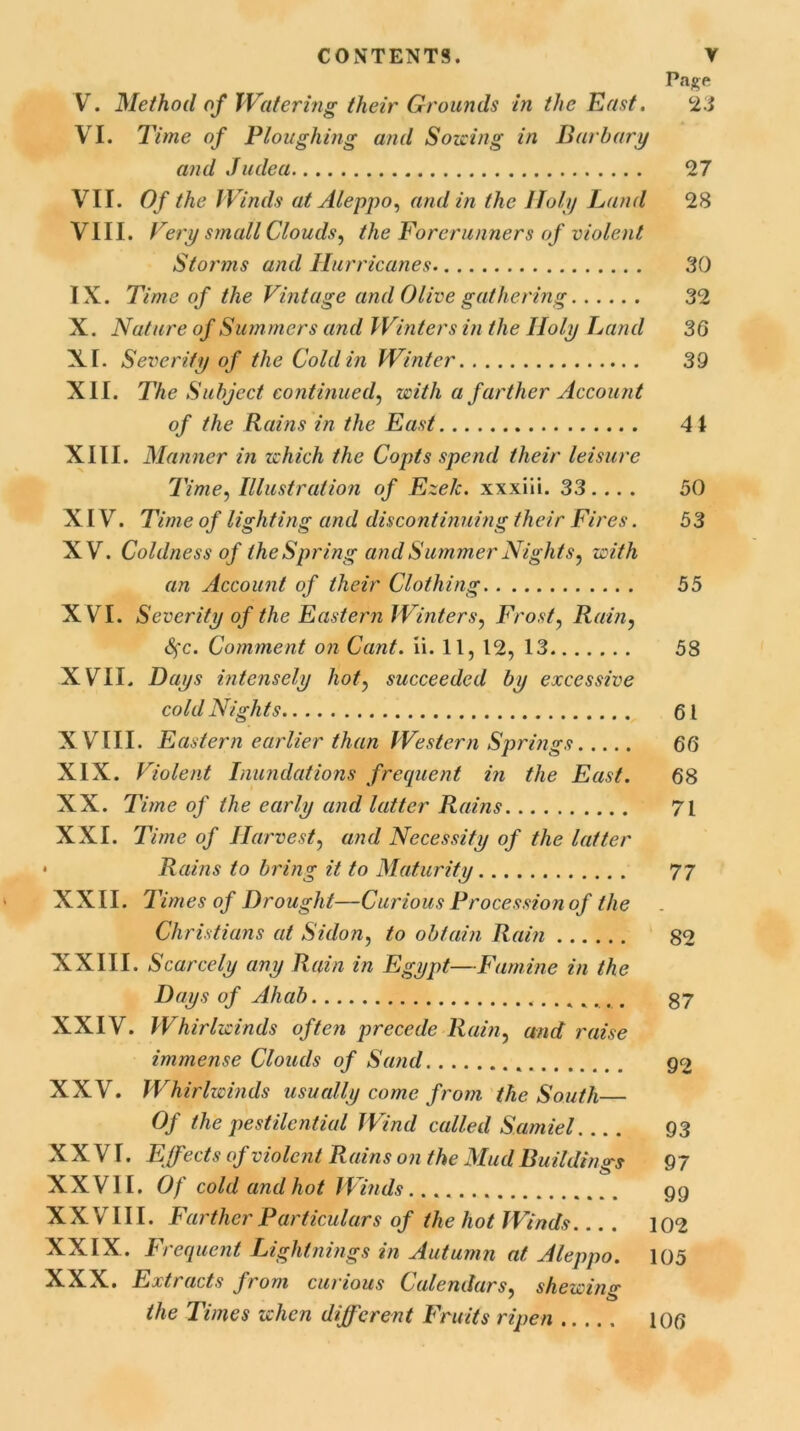 CONTENTS. V
Page
V. Method of Watering their Grounds in the East. 23
VI. Time of Ploughing and Sowing in Barbary
and Judea.................... 27
VII. Of the Winds at Aleppo, and in the Holy Land 28
VIII. Very small Clouds, the Forerunners of violent
Storms and Hurricanes.................... 30
IX. Time of the Vintage and Olive gathering...... 32
X. Nature of Summers and Winters in the Holy Land 36
XI. Severity of the Cold in Winter............... 39
XII. The Subject continued, with a farther Account
of the Rains in the East................. 44
XIII. Manner in which the Copts spend their leisure
Time, Illustration of Ezek. xxxiii. 33.... 50
XIV. Time of lighting and discontinuing their Fires. 53
XV. Coldness of the Spring and Summer Nights, with
an Account of their Clothing............. 55
XVI. Severity of the Eastern Winters, Frost, Rain,
&c. Comment on Cant. ii. 11, 12, 13....... 58
XVII. Days intensely hot, succeeded by excessive
cold Nights.......................... 61
XVIII. Eastern earlier than Western Springs..... 66
XIX. Violent Inundations frequent in the East. 68
XX. Time of the early and latter Rains........... 71
XXI. Time of Harvest, and Necessity of the latter
Rains to bring it to Maturity............. 77
XXII. Times of Drought—Curious Procession of the
Christians at Sidon, to obtain Rain...... 82
XXIII. Scarcely any Rain in Egypt—Famine in the
Days of Ahab......................... 87
XXIV. Whirlwinds often precede Rain, and raise
immense Clouds of Sand.................. 92
XXV. Whirlwinds usually come from the South—
Of the pestilential Wind called Samiel.... 93
XXVI. Effects of violent Rains on the Mud Buildings 97
XXVII. Of cold and hot Winds.................. 99
XXVIII. Farther Particulars of the hot Winds.... 102
XXIX. Frequent Lightnings in Autumn at Aleppo. 105
XXX. Extracts from curious Calendars, shewing
the Times when different Fruits ripen..... 106